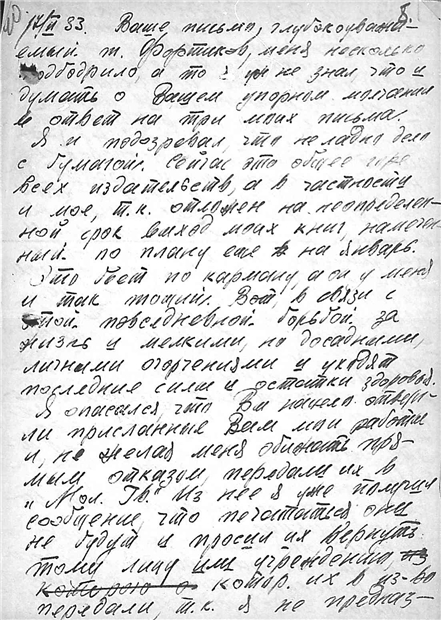 17/II 33. Ваше письмо, глубокоуважа-
емый т. Фортиков, меня несколько
подбодрило, а то я уж не знал, что и
думать о Вашем упорном молчании
в ответ на три моих письма.
Я и подозревал, что неладно дело
с бумагой. Сейчас это общее горе
всех издательств, а в частности
и мое, т.к. отложен на неопределен-
ной срок выход моих книг, намечен-
ных по плану еще на январь.
Это бьет по карману, а он у меня
и так тощий. Вот, в связи с
этой повседневной борьбой за
жизнь и мелкими, но досадными,
личными огорчениями и уходят
последние силы и остатки здоровья.
Я опасался, что Вы начисто отверг-
ли присланные Вам мои работы
и, не желая меня обижать пря-
мым отказом, передали их в
"Мол. Гв." Из нее я уже получил
сообщение, что печататься они
не будут и просил их вернуть
тому лицу или учреждению,
котор. их в из-во
передали, т.к. я не предназ-